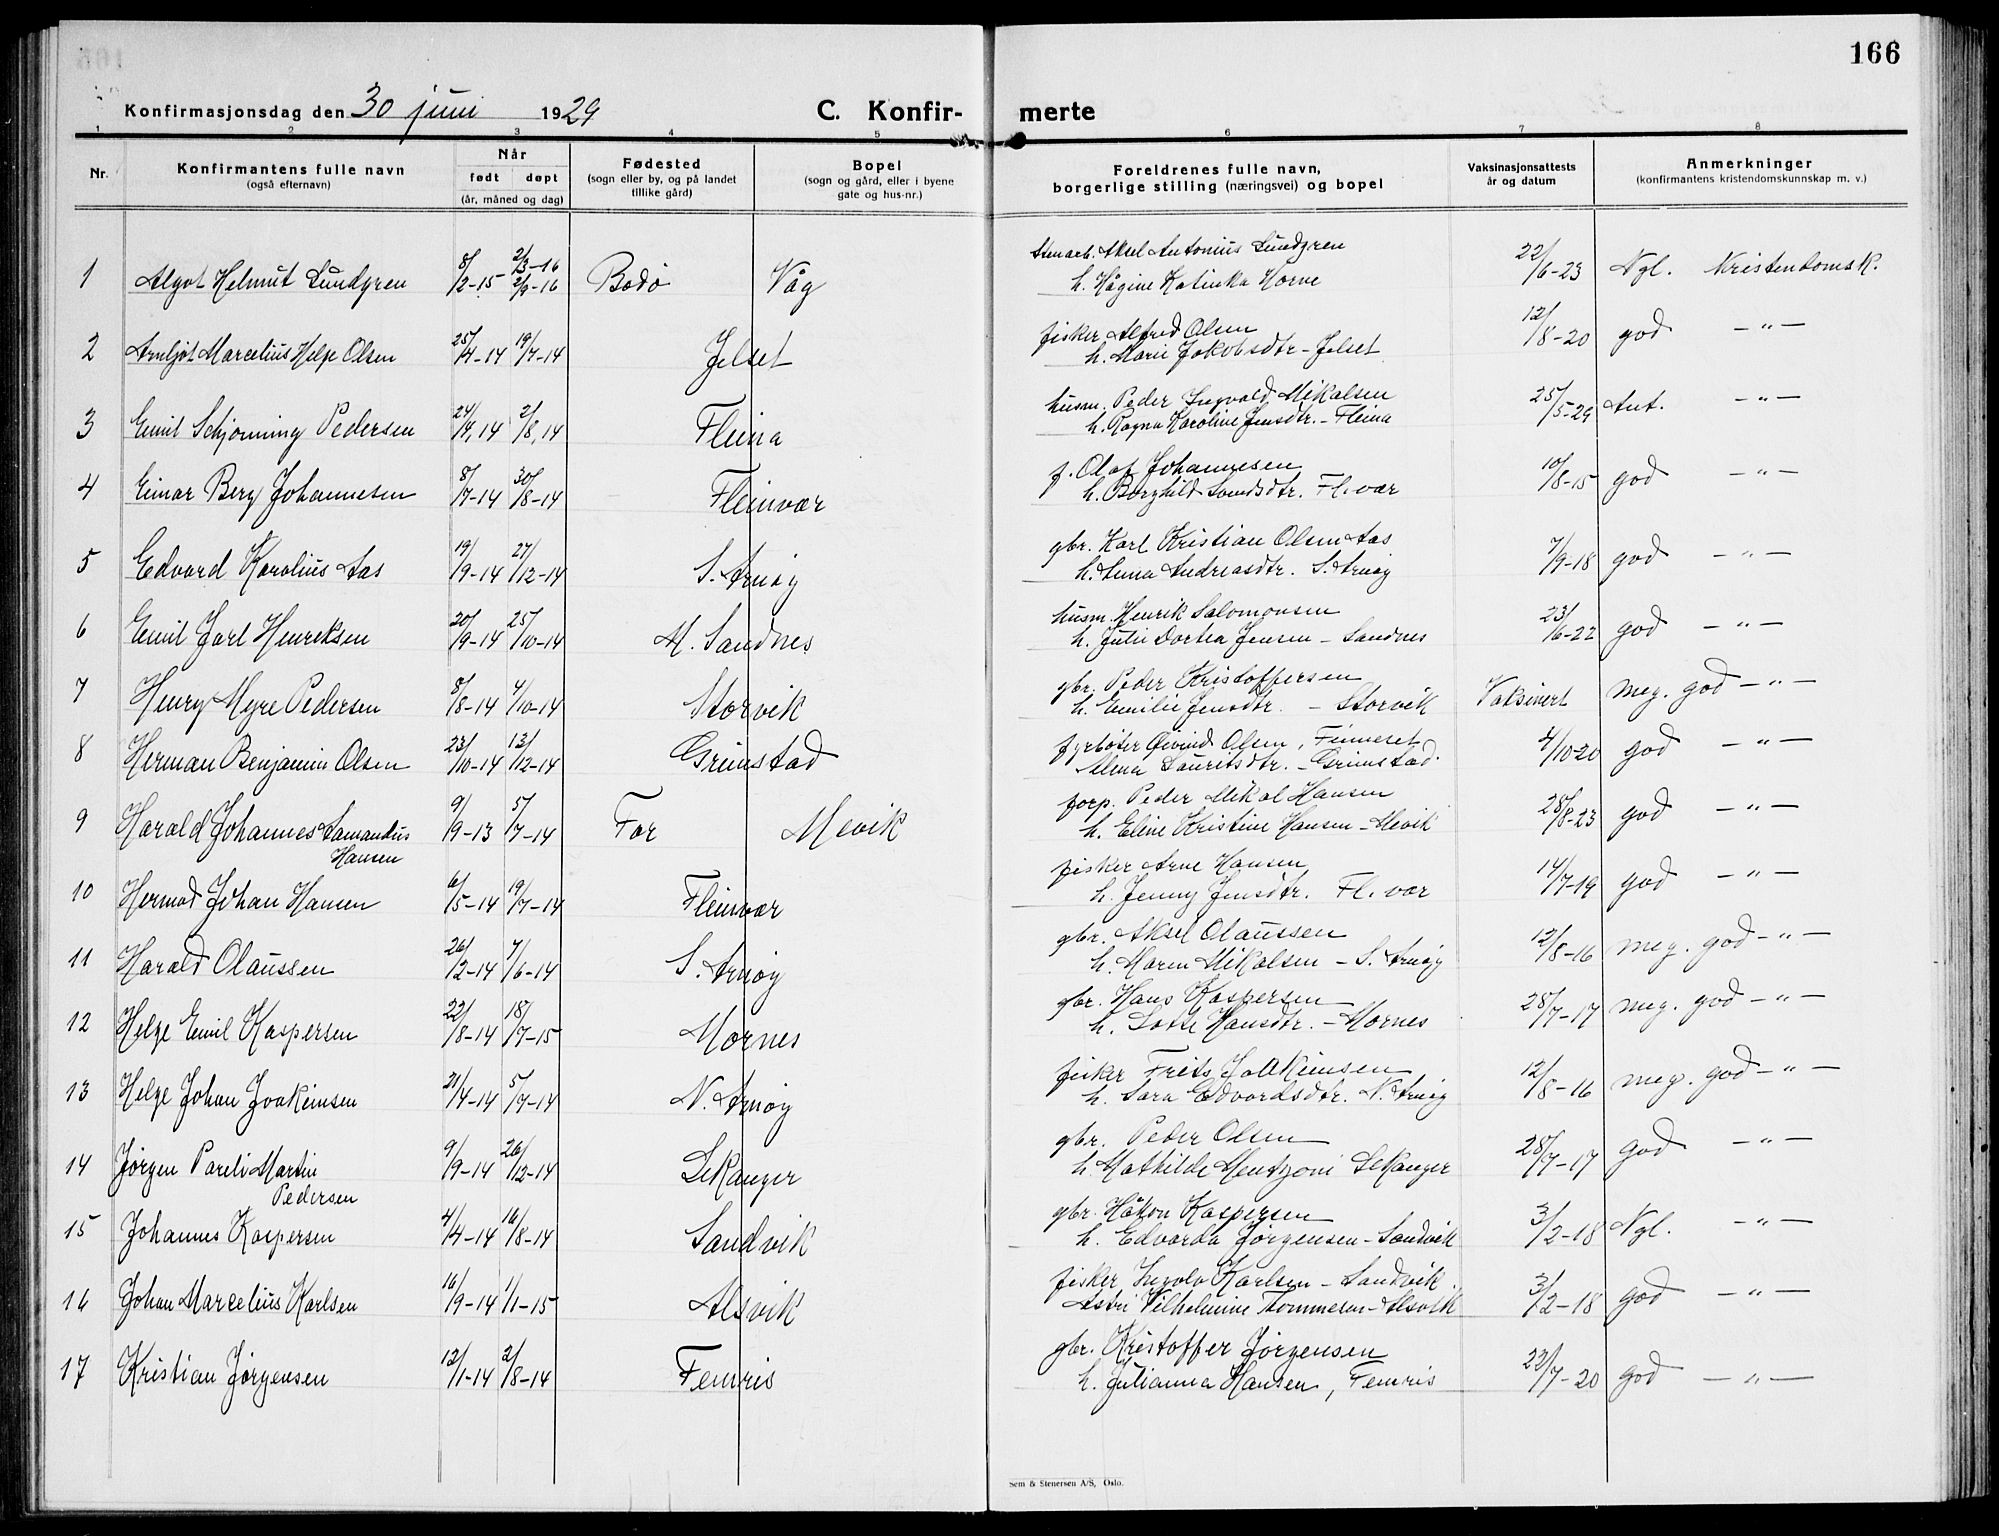 166
Konfirmasjonsdag den 30 juni 1929 C. Konfir- merte
1 2 3 4 5 6 7 8
Nr. Konfirmantens fulle navn (også efternavn) Når født døpt (år, måned og dag) Fødested (sogn eller by, og på landet tillike gård) Bopel (sogn og gård, eller i byene gate og hus-nr.) Foreldrenes fulle navn, borgerlige stilling (næringsvei) og bopel Vaksinasjonsattests år og datum Anmerkninger (konfirmantens kristendomskunnskap m. v.)
Stenarb. Aksel Antonius Lundgren
1 Algot Helmut Lundgren 8/2-15 2/3-16 2/9-16 Bodø Våg h. Hågine Katinka Horne 22/6-23 Ngl. Kristendomsk.
fisker Alfred Olsen
2 Arnljot Marcelius Helge Olsen 25/4-14 19/7-14 Jelset h. Marie Jakobsdtr - Jelset 12/8-20 god -"-
husm. Peder Ingvald Mikalsen
3 Emil Schjønning Pedersen 24/4,14 2/8,14 Fleina h. Ragna Karoline Jensdtr. - Fleina 25/5-29 Ant. -"-
f. Olaf Johannesen
4 Einar Berg Johannesen 8/7-14 30/8-14 Fleinvær h. Borghild dtr. Fl.vær 10/8-15 god -"-
gbr. Karl Kristian Olsen Aas
5 Edvard Karolius Aas 19/9-14 27/12-14 S. Arnøy h. Anna Andreasdtr. S. Arnøy 7/9-18 god -"-
husm. Henrik Salomonsen
6 Emil Jarl Henriksen 20/9-14 25/10-14 M. Sandnes h. Julie Dortea Jensen - Sandnes 23/6-22 god -"-
gbr. Peder Kristoffersen
7 Henry Myre Pedersen 8/8-14 4/10-14 Storvik h. Emilie Jensdtr. - Storvik Vaksinert meg. god -"-
fyrbøter Øivind Olsen, Finneset
8 Herman Benjamin Olsen 23/10-14 13/12-14 Grimstad Alma Lauritsdtr. - Grimstad. 4/10-20 god -"-
forp. Peder Mikal Hansen
9 Harald Johannes Samandus 9/9-13 5/7-14 For Mevik h. Eline Kristine Hansen - Mevik 28/8-23 god -"-
Hansen
fisker Arne Hansen
10 Hermod Johan Hansen 6/5-14 19/7-14 Fleinvær h. Jenny Jensdtr. Fl.vær 14/7-19 god -"-
gbr. Aksel Olaussen
11 Harald Olaussen 26/2-14 7/6-14 S. Arnøy h. Maren Mikalsen - S. Arnøy 12/8-16 meg. god -"-
gbr. Hans Kaspersen
12 Helge Emil Kaspersen 22/8-14 18/7-15 Mornes h. Lotte Hansdtr. - Mornes 28/7-17 meg. god -"-
fisker Frits Joakimsen
13 Helge Johan Joakimsen 21/4-14 5/7-14 N. Arnøy h. Sara Edvardsdtr. N. Arnøy 12/8-16 meg. god -"-
gbr. Peder Olsen
14 Jørgen Pareli Martin 9/9-14 26/12-14 Sekanger h. Mathilde Mentzoni Sekanger 28/7-17 god -"-
Pedersen
gbr. Håkon Kaspersen
15 Johannes Kaspersen 4/4-14 16/8-14 Sandvik h. Edvarda Jørgensen - Sandvik 3/2-18 Ngl. -"-
fisker Ingolv Karlsen - Sandvik.
16 Johan Marcelius Karlsen 16/9-14 1/1-15 Alsvik Astri Vilhelmine Tommesen - Alsvik 3/2-18 god -"-
gbr. Kristoffer Jørgensen
17 Kristian Jørgensen 12/1-14 2/8-14 Femris h. Julianna Hansen, Femris 22/7-20 god -"-
Sem & Stenersen A/S, Oslo.